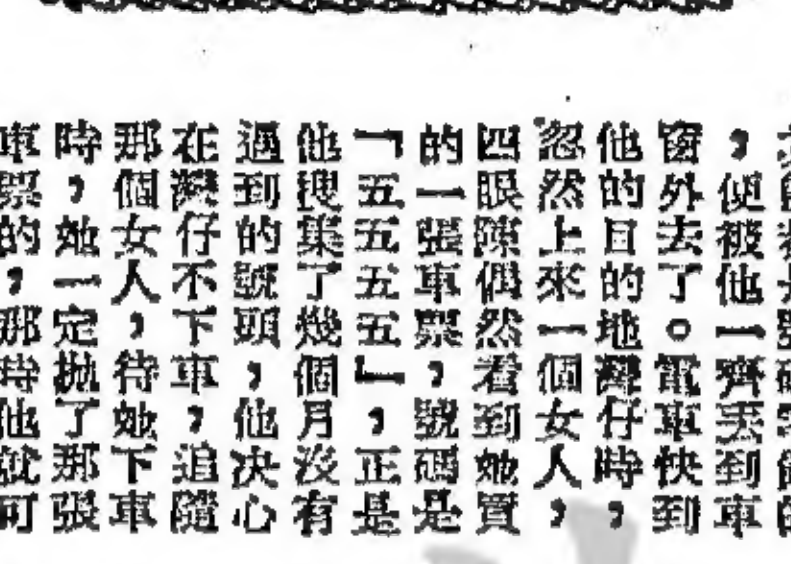 ，便被他一齊丟到車
窗外去了。電車快到
他的目的地灣仔時，
忽然上來一個女人，
四眼陳偶然看到她買
的一張車票，號碼是
「五五五五」，正是
他搜集了幾個月沒有
遇到的號頭，他決心
在灣仔不下車，追隨
那個女人，待她下車
時，她一定拋了那張
車票的，那時他就可